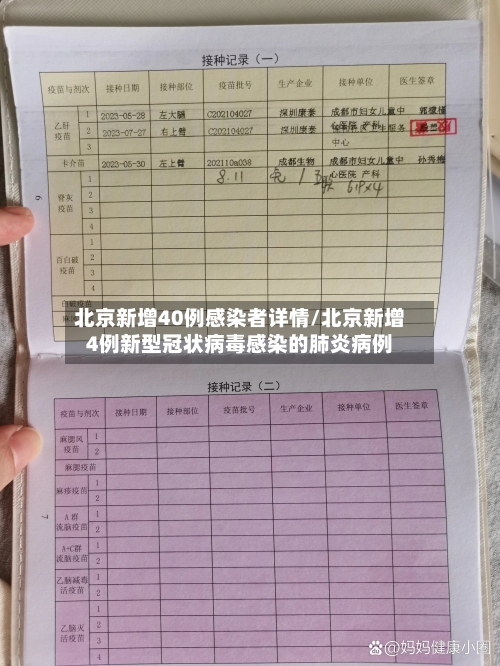 接种记录（一）
疫苗与剂次 接种日期 接种部位 疫苗批号 生产企业 接种单位 医生签章
乙肝疫苗 1 2023-05-28 左大腿 C202104027 深圳康泰 成都市妇女儿童中心医院 产科
2 2023-07-27 右上臂 C202104027 深圳康泰
中心
卡介苗 2023-05-30 左上臂 202110a038 成都生物 成都市妇女儿童中心医院 产科 孙秀梅
脊灰疫苗 1
8.11
2
3
4
百白破疫苗 1
2
3
4
6
北京新增40例感染者详情/北京新增
4例新型冠状病毒感染的肺炎病例
接种记录（二）
疫苗与剂次 接种日期 接种部位 疫苗批号 生产企业 接种单位 医生签章
麻腮风疫苗 1
2
麻腮疫苗
麻疹疫苗 1
2
A 群流脑疫苗 1
2
A+C群流脑疫苗 1
2
乙脑减毒活疫苗 1
2
乙脑灭活疫苗 1
2
3
4
7
@妈妈健康小圈